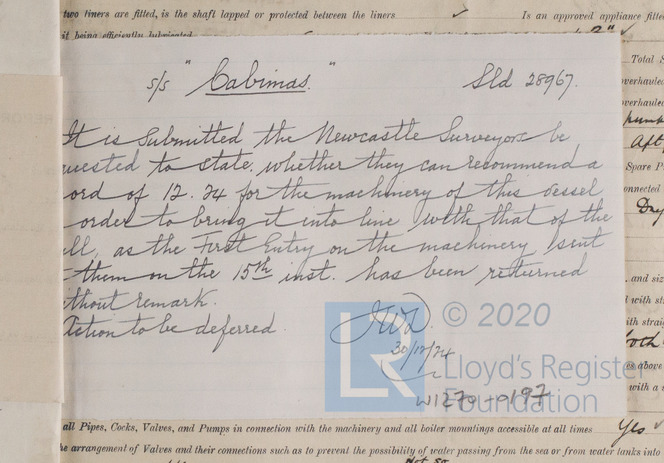 two liners are fitted, is the shaft lapped or protected between the liners ✓ Is an approved appliance fitted
it being efficiently lubricated
s/s "Cabimas." Sld 28967.
Total S
overhaule
overhaule
It is submitted the Newcastle Surveyors be
uested to state, whether they can recommend a
Spare P
ord of 12.24 for the machinery of this vessel
onnected
order to bring it into line with that of the
Dry
ll, as the First Entry on the machinery, sent
them on the 15th inst. has been returned
and siz
thout remark.
with st
Action to be deferred.
with strai
JWD.
30/12/24
© 2020
LR
Lloyd's Register
Foundation
es above
with a s
W1270-0197
all Pipes, Cocks, Valves, and Pumps in connection with the machinery and all boiler mountings accessible at all times Yes ✓
he arrangement of Valves and their connections such as to prevent the possibility of water passing from the sea or from water tanks into